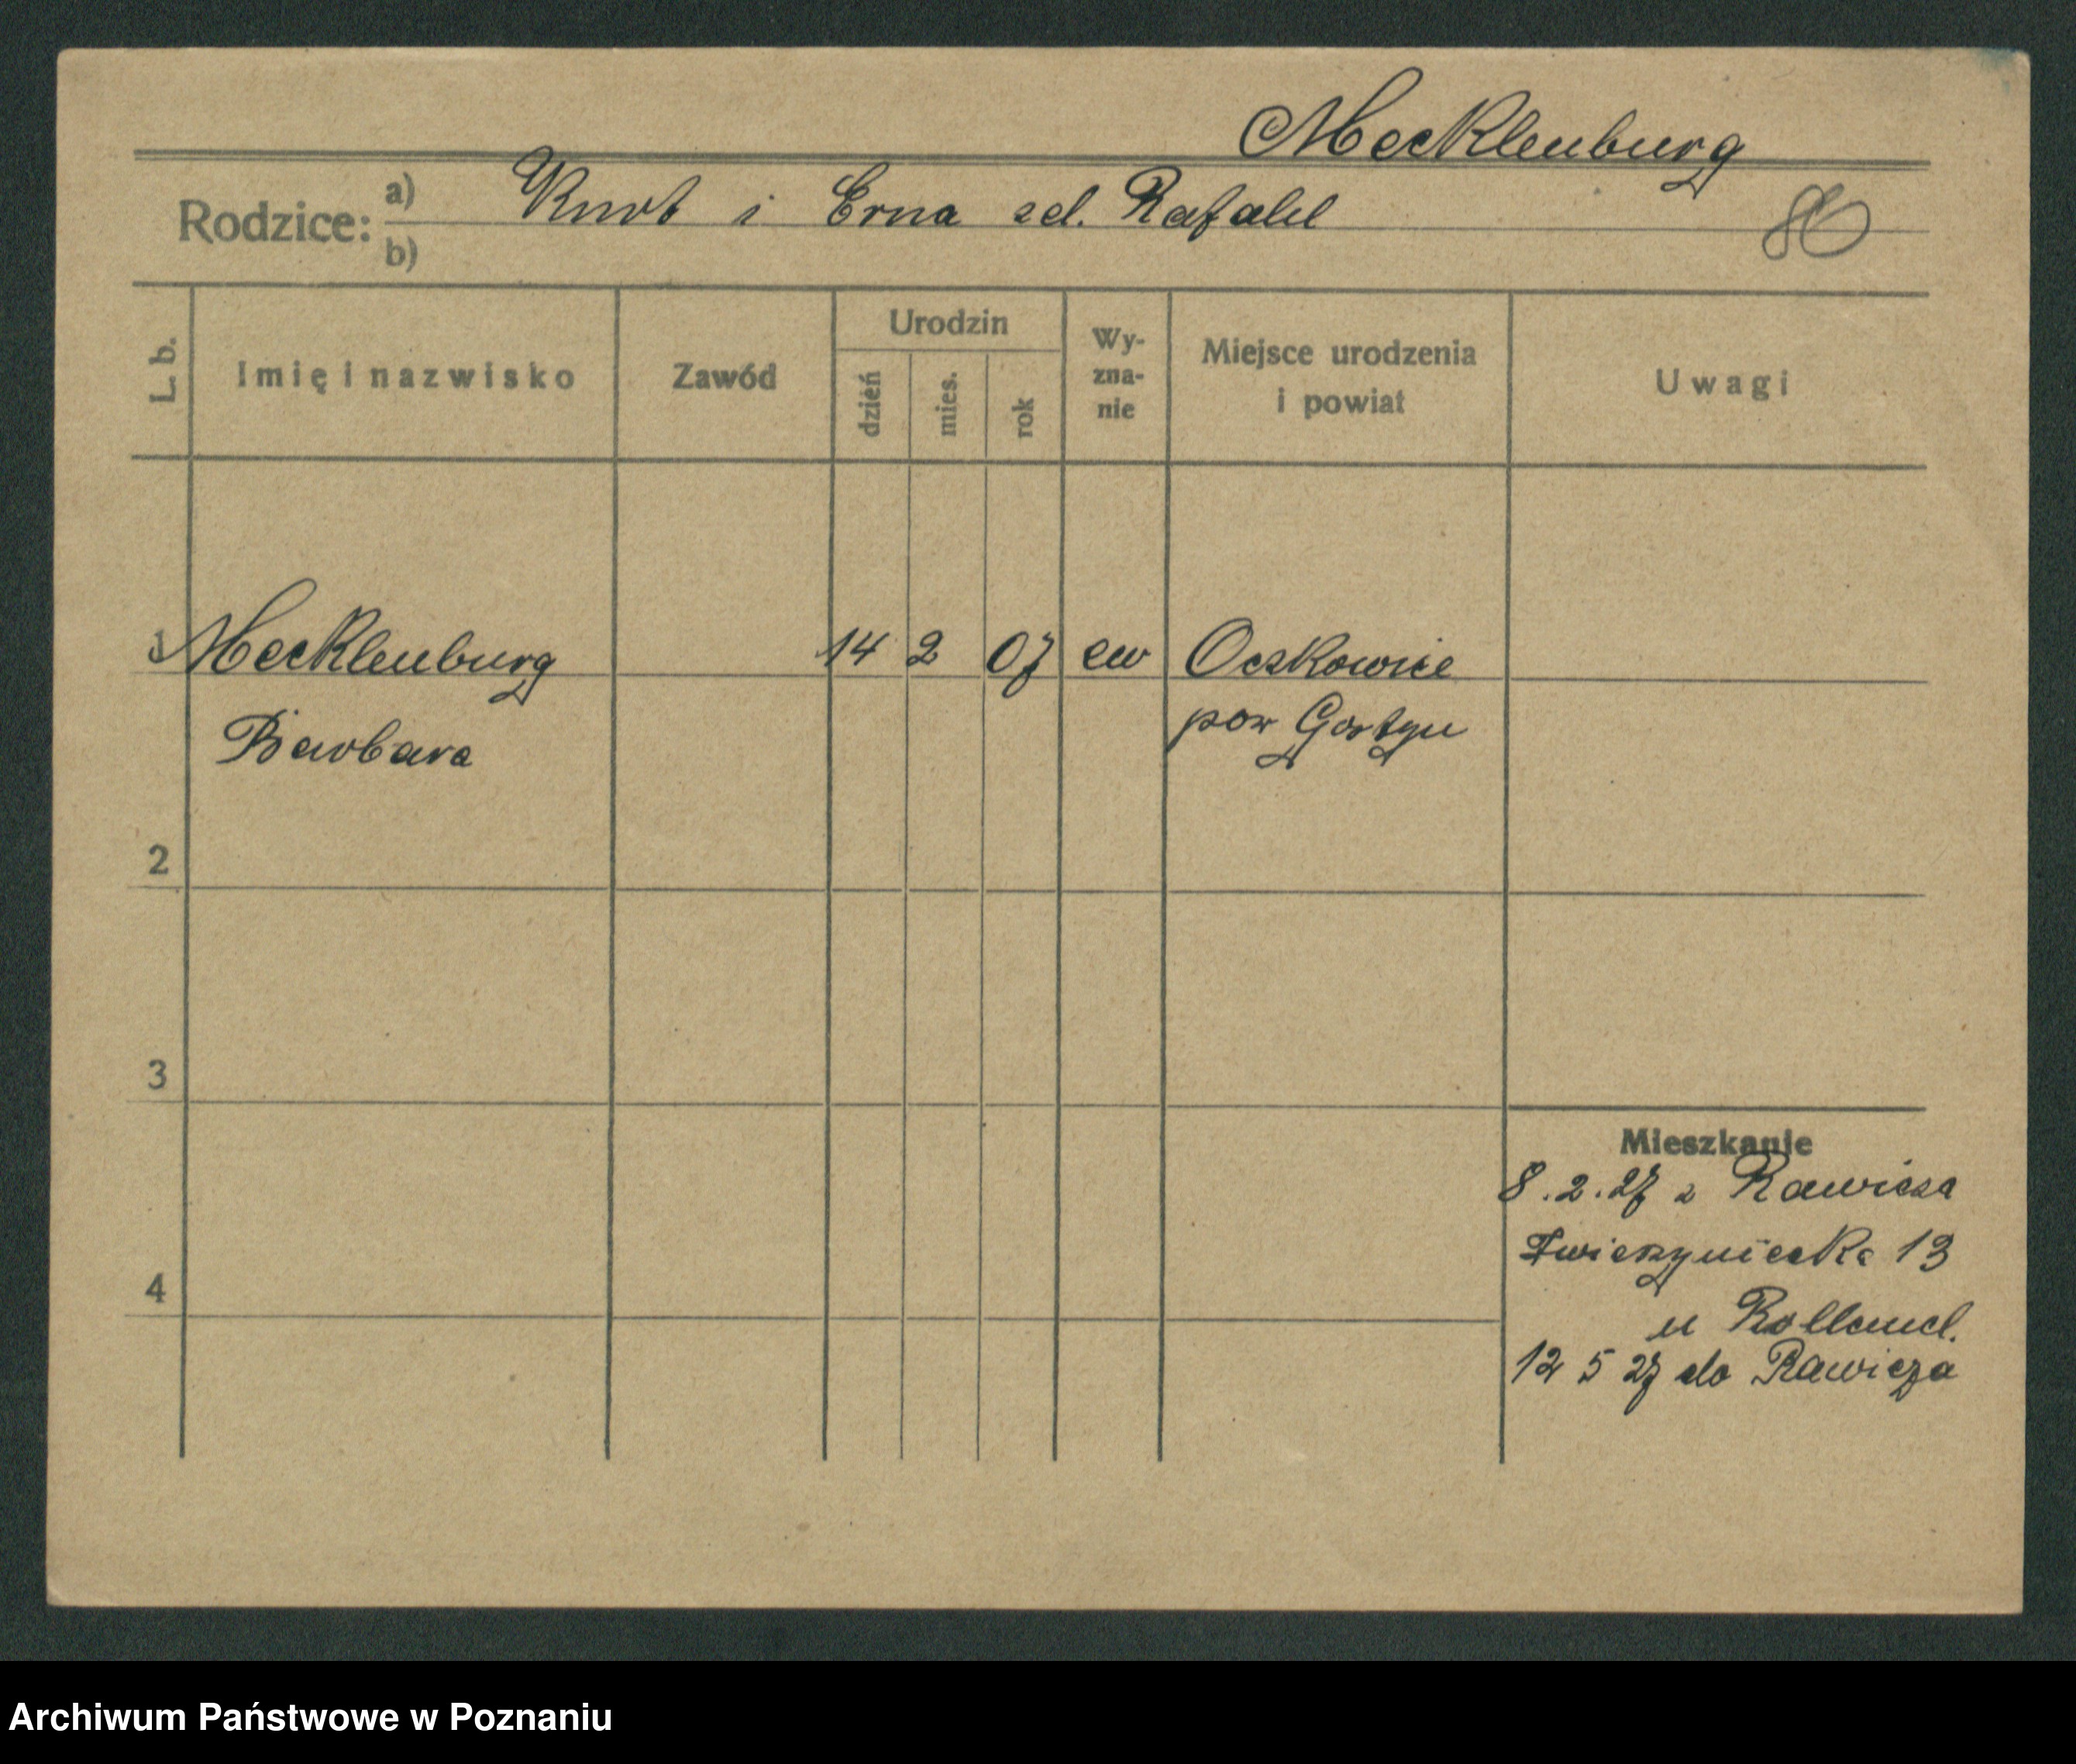 Mecklenburg
Rodzice: a) Kurt i Erna zd. Rafald
b)
86
L. b. Imię i nazwisko Zawód Urodzin dzień mies. rok Wy-zna-nie Miejsce urodzenia i powiat Uwagi
1 Mecklenburg 14 2 07 ew Oczkowice
Barbara pow Gostyn
2
3
4
Mieszkanie
8.2.27 z Rawicza
Zwierzyniecka 13
u
12 5 27 do Rawicza
Archiwum Państwowe w Poznaniu